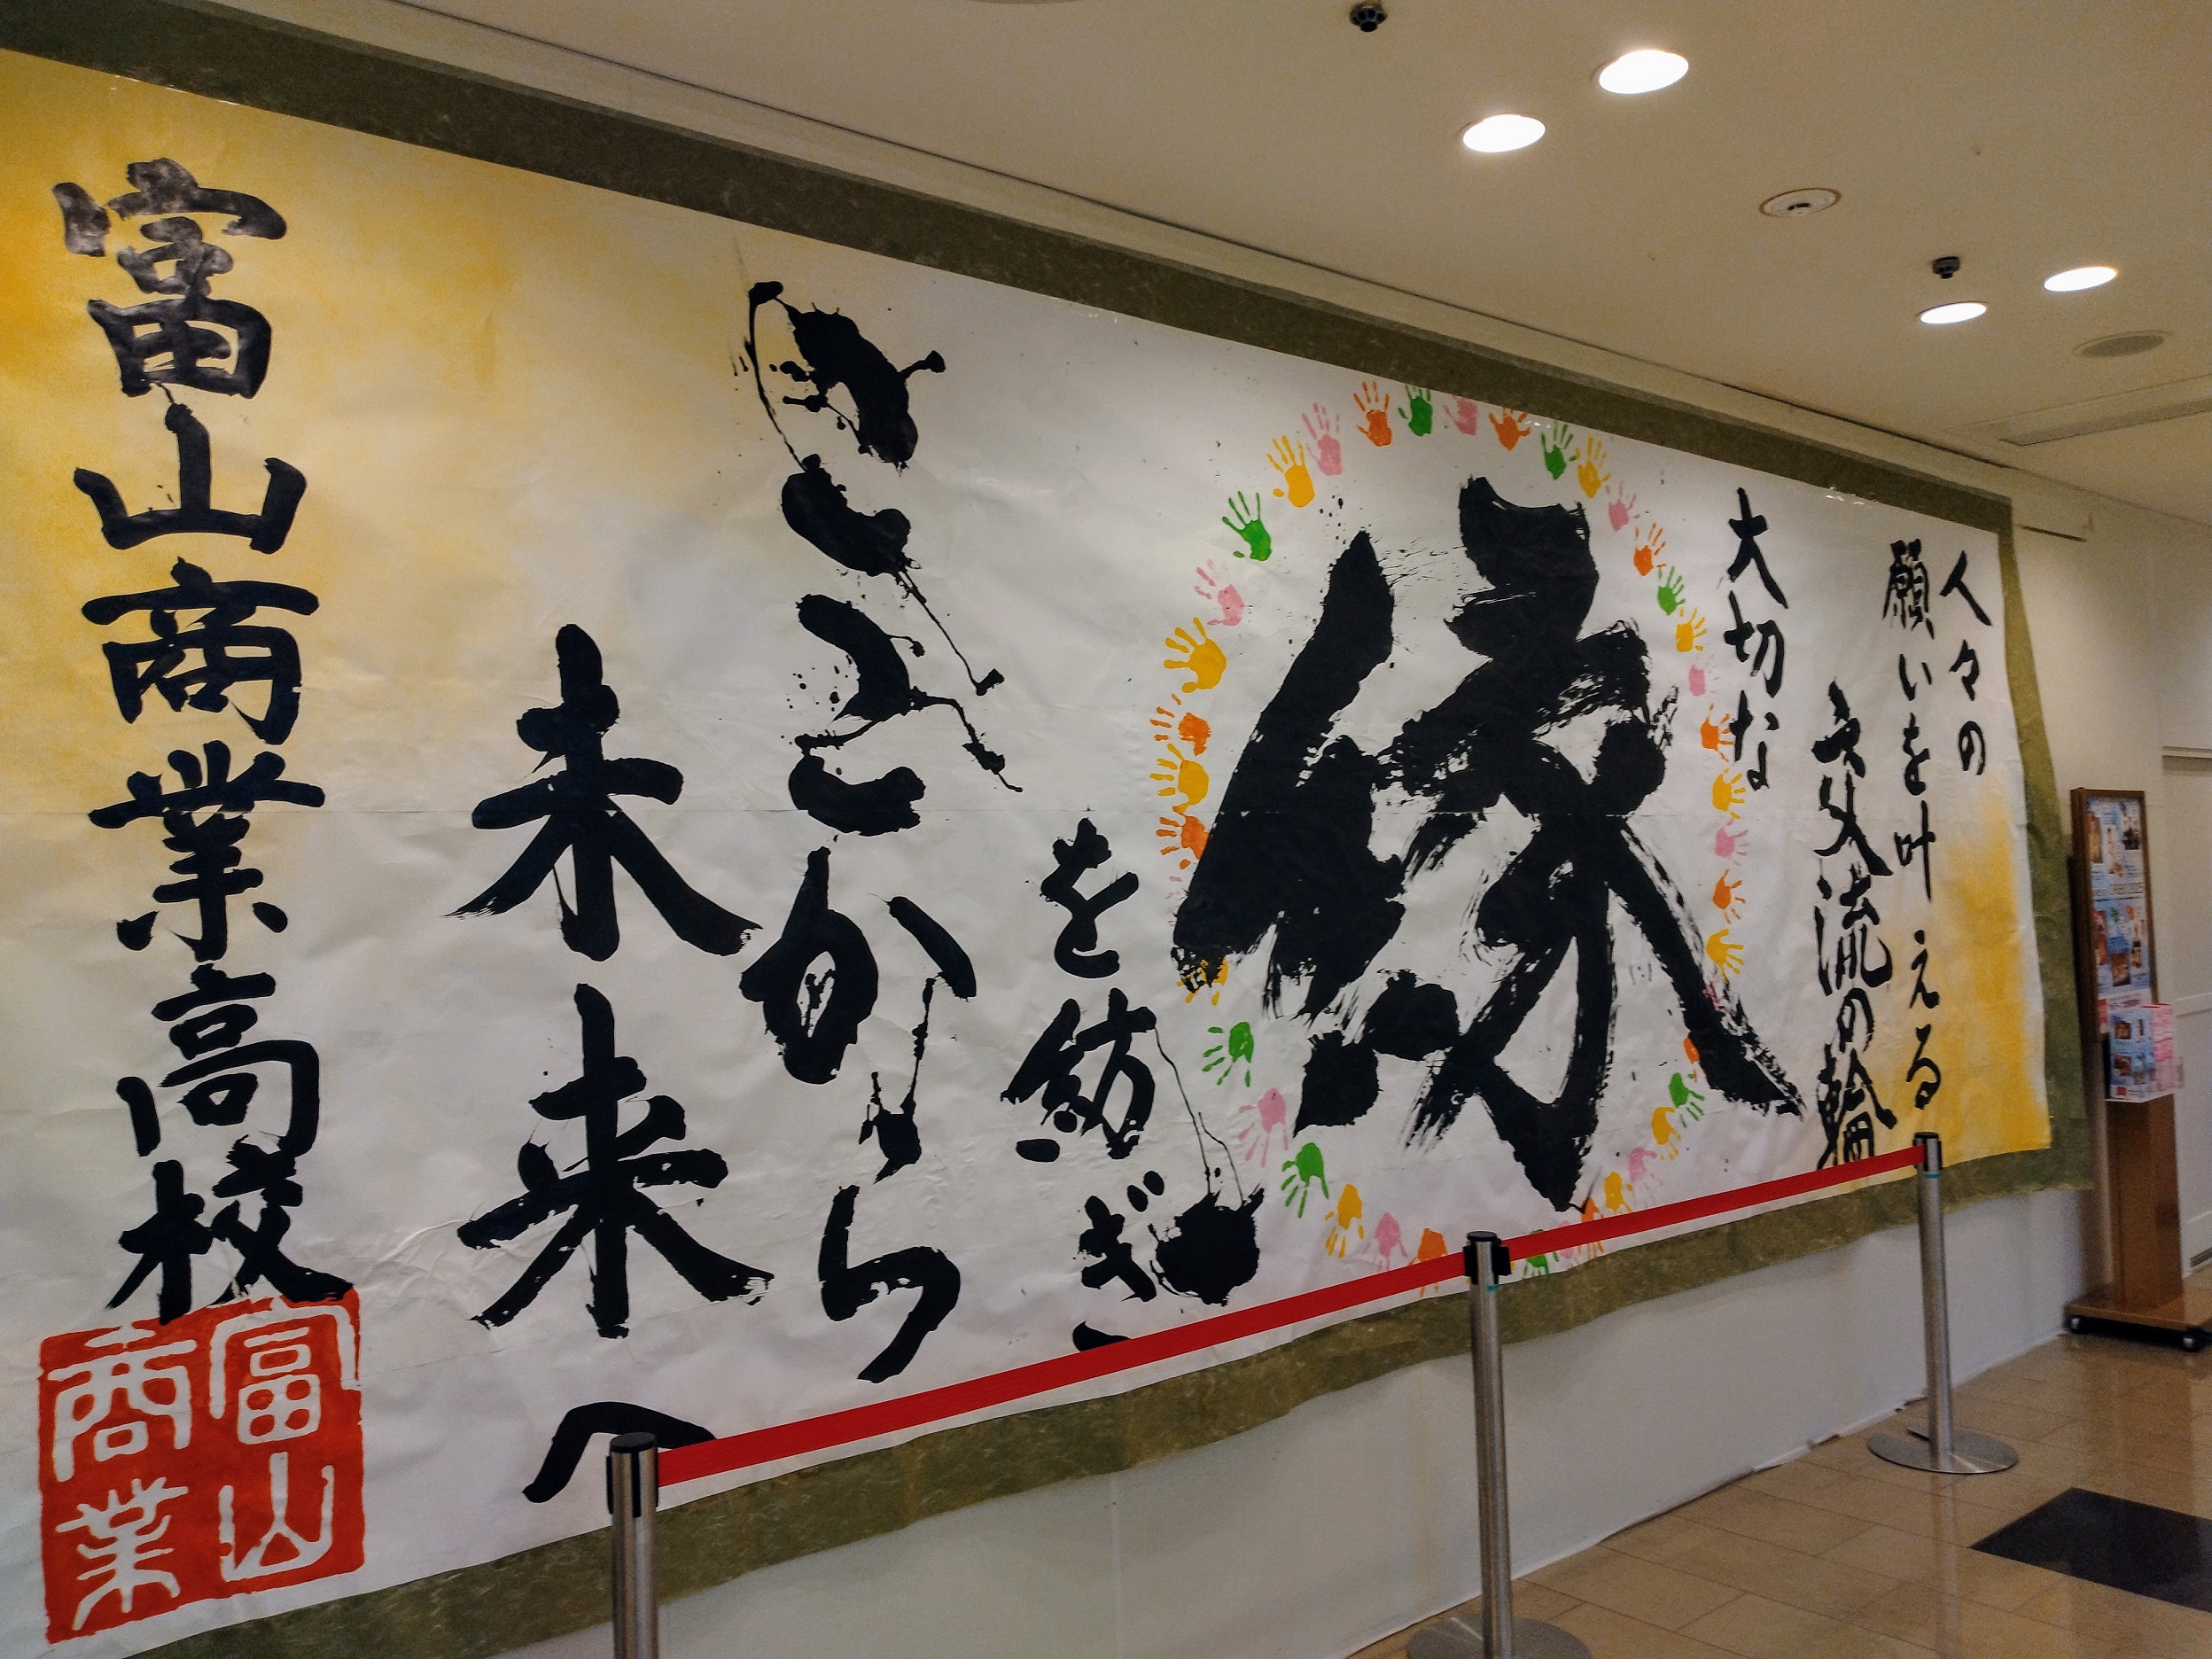 人々の
願いを叶える
交流の輪
大切な
縁
を紡ぎ
ここから
未来へ
富山商業高校
富山
商業